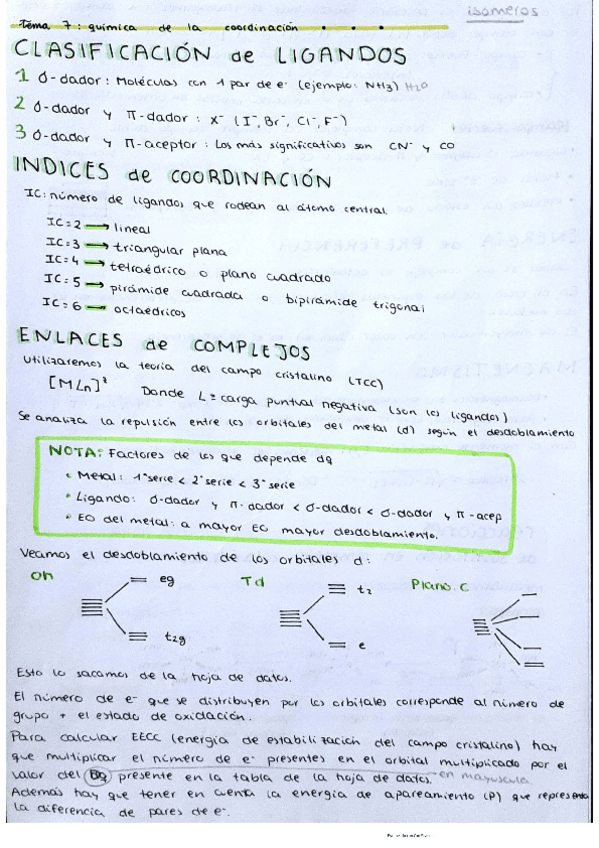 isomeros
Tema 7: química de la coordinación
CLASIFICACIÓN de LIGANDOS
1 σ-dador: Moléculas con 1 par de e⁻ (ejemplo: NH3) H2O
2 σ-dador y π-dador: X⁻ (I⁻, Br⁻, Cl⁻, F⁻)
3 σ-dador y π-aceptor: Los más significativos son CN⁻ y CO
INDICES de COORDINACIÓN
IC: número de ligandos que rodean al átomo central.
IC=2 → lineal
IC=3 → triangular plana
IC=4 → tetraédrico o plano cuadrado
IC=5 → pirámide cuadrada o bipirámide trigonal
IC=6 → octaédricos
ENLACES de COMPLEJOS
Utilizaremos la teoría del campo cristalino (TCC)
[MLn]ᶻ Donde L = carga puntual negativa (son los ligandos)
Se analiza la repulsión entre los orbitales del metal (d) según el desdoblamiento
NOTA: Factores de los que depende dq
• Metal: 1ª serie < 2ª serie < 3ª serie
• Ligando: σ-dador y π-dador < σ-dador < σ-dador y π-acep
• EO del metal: a mayor EO mayor desdoblamiento.
Veamos el desdoblamiento de los orbitales d:
Oh eg Td t2 Plano C
t2g e
Esto lo sacamos de la hoja de datos.
El número de e⁻ que se distribuyen por los orbitales corresponde al número de
grupo + el estado de oxidación.
Para calcular EECC (energía de estabilización del campo cristalino) hay
que multiplicar el número de e⁻ presentes en el orbital multiplicado por el
valor del Dq presente en la tabla de la hoja de datos. en mayuscula
Además hay que tener en cuenta la energía de apareamiento (P) que representa
la diferencia de pares de e⁻.